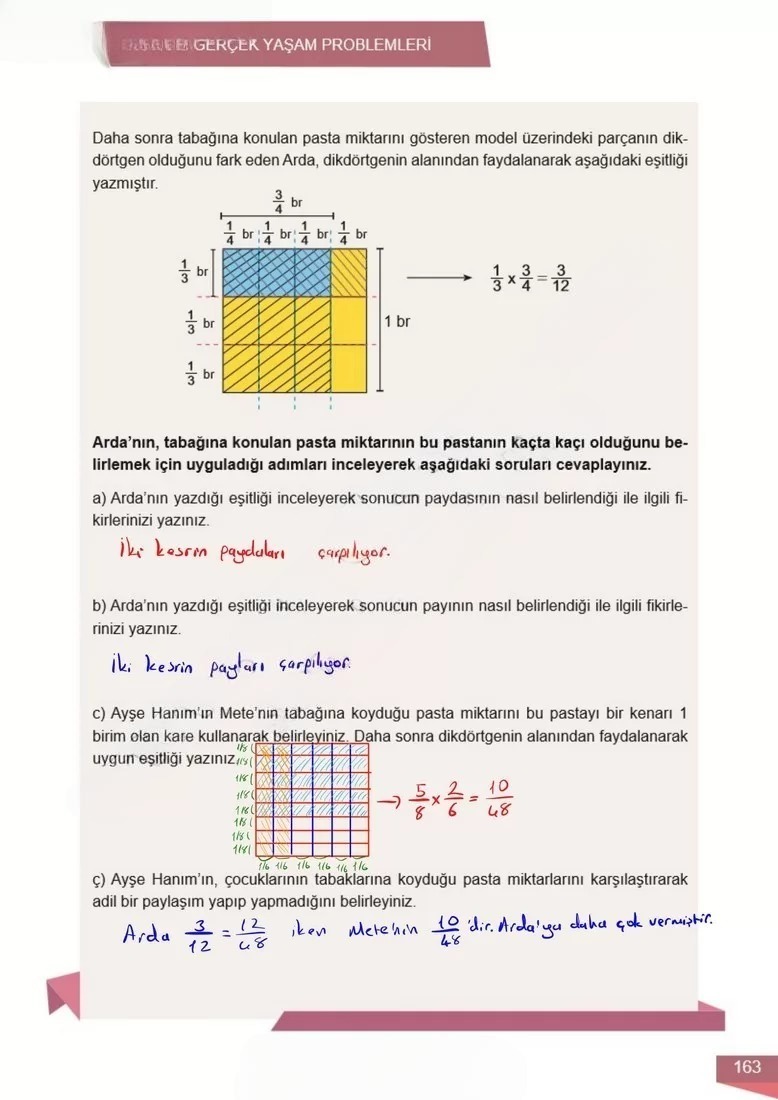 GERÇEK YAŞAM PROBLEMLERİ
Daha sonra tabağına konulan pasta miktarını gösteren model üzerindeki parçanın dik-
dörtgen olduğunu fark eden Arda, dikdörtgenin alanından faydalanarak aşağıdaki eşitliği
yazmıştır.
3/4 br
1/4 br 1/4 br 1/4 br 1/4 br
1/3 br
1/3 x 3/4 = 3/12
1/3 br
1 br
1/3 br
Arda'nın, tabağına konulan pasta miktarının bu pastanın kaçta kaçı olduğunu be-
lirlemek için uyguladığı adımları inceleyerek aşağıdaki soruları cevaplayınız.
a) Arda'nın yazdığı eşitliği inceleyerek sonucun paydasının nasıl belirlendiği ile ilgili fi-
kirlerinizi yazınız.
İki kesrin paydaları çarpılıyor.
b) Arda'nın yazdığı eşitliği inceleyerek sonucun payının nasıl belirlendiği ile ilgili fikirle-
rinizi yazınız.
İki kesrin payları çarpılıyor.
c) Ayşe Hanım'ın Mete'nin tabağına koyduğu pasta miktarını bu pastayı bir kenarı 1
birim olan kare kullanarak belirleyiniz. Daha sonra dikdörtgenin alanından faydalanarak
uygun eşitliği yazınız.
1/8
1/8
1/8
1/8
1/8
1/8
1/8
1/8
→ 5/8 x 2/6 = 10/48
1/6 1/6 1/6 1/6 1/6 1/6
ç) Ayşe Hanım'ın, çocuklarının tabaklarına koyduğu pasta miktarlarını karşılaştırarak
adil bir paylaşım yapıp yapmadığını belirleyiniz.
Arda 3/12 = 12/48 iken Mete'nin 10/48 'dir. Arda'ya daha çok vermiştir.
163